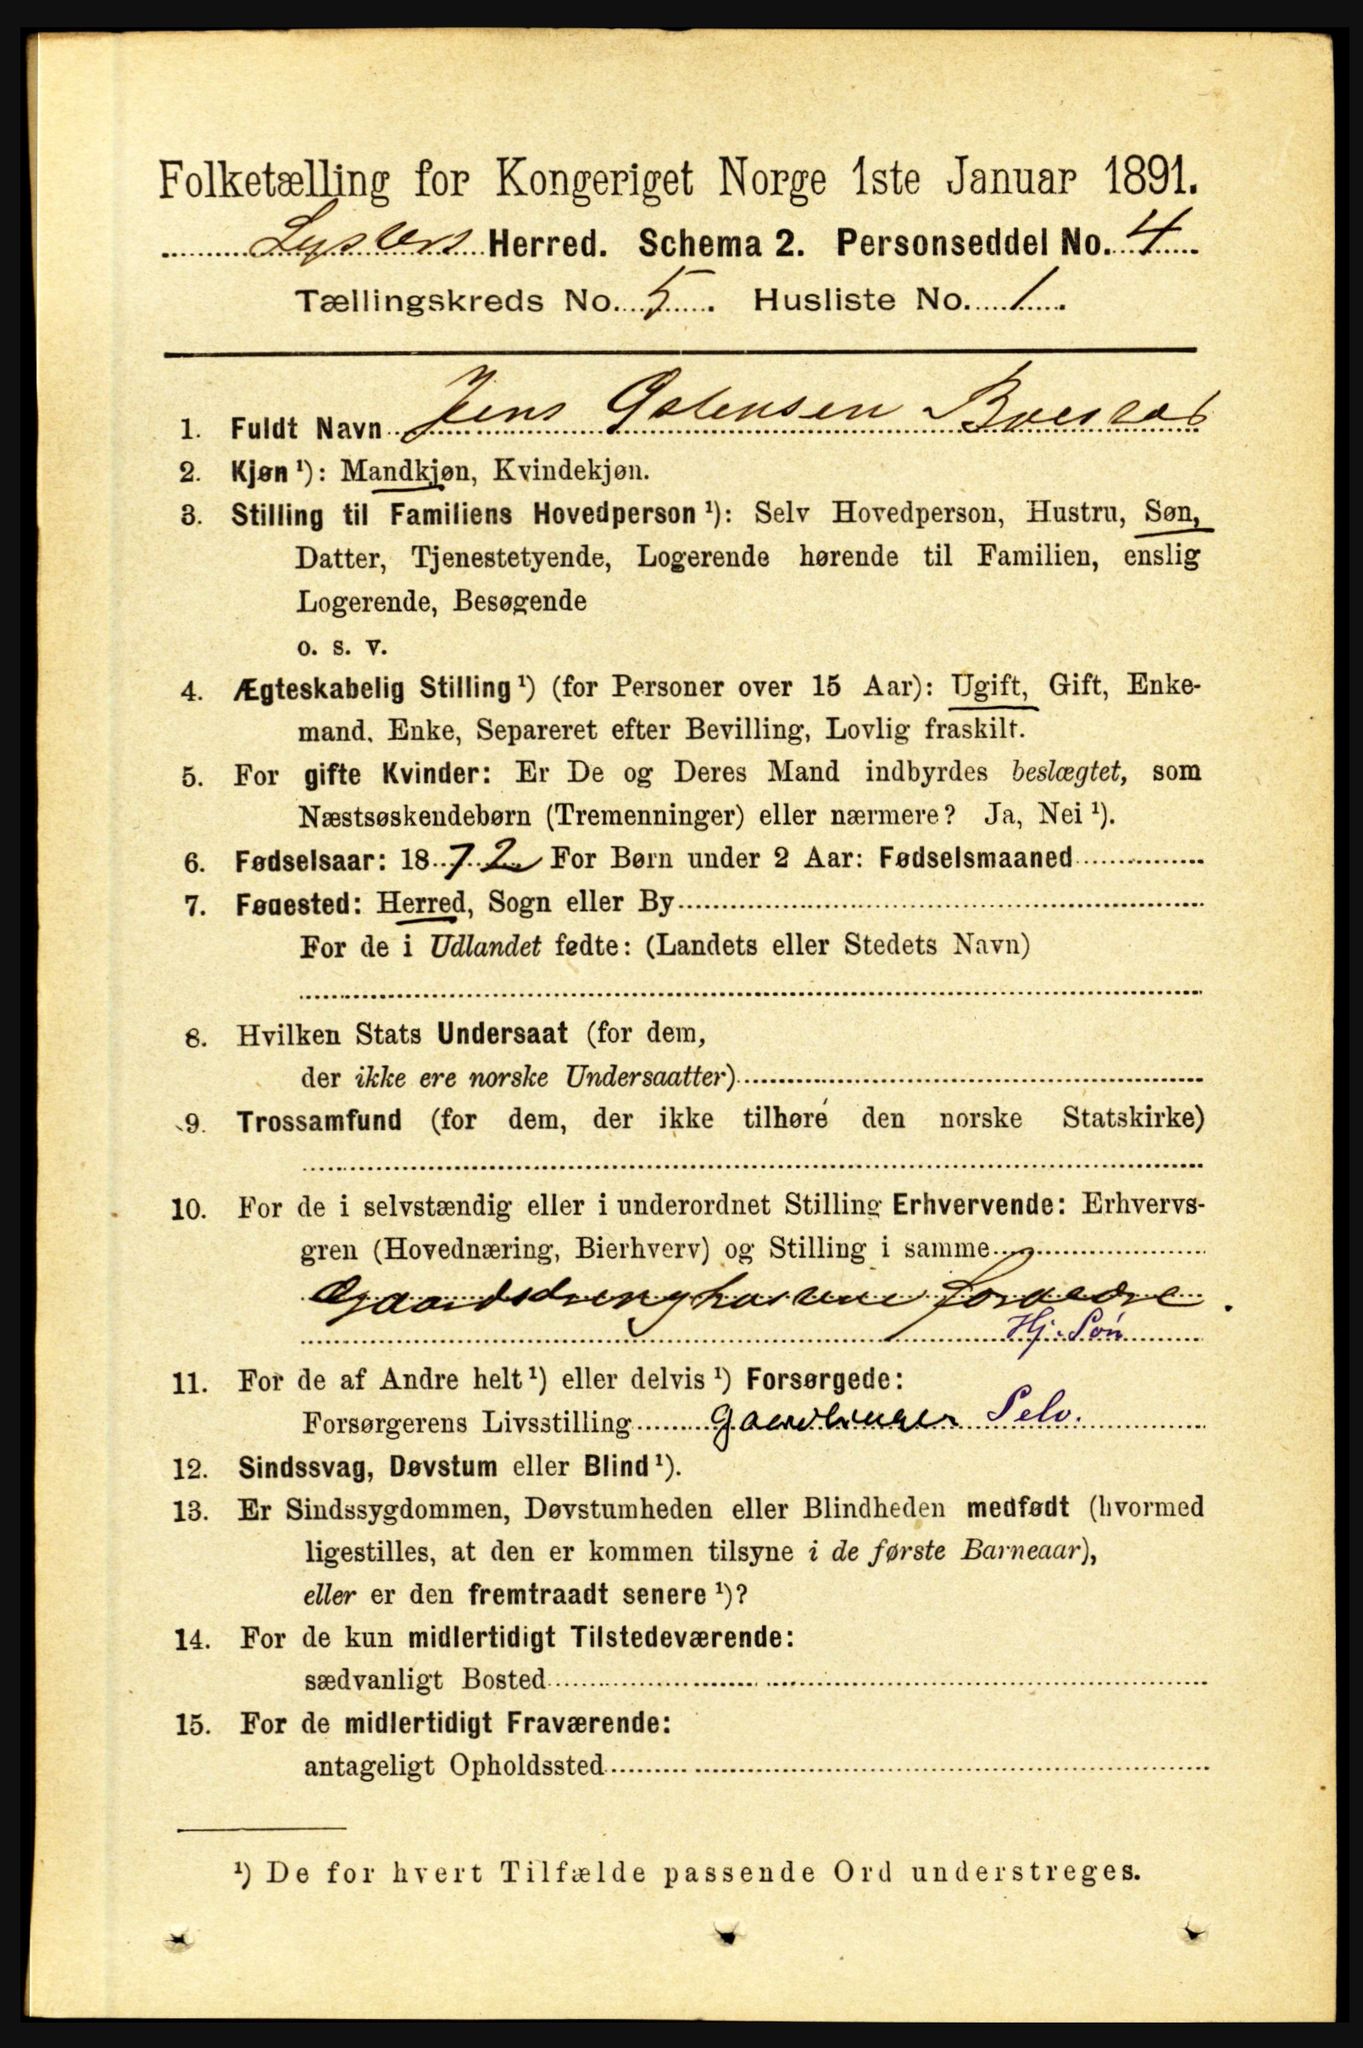 Folketælling for Kongeriget Norge 1ste Januar 1891.
Lysters Herred. Schema 2. Personseddel No. 4
Tællingskreds No. 5. Husliste No. 1.
1. Fuldt Navn Jens
2. Kjøn ¹): Mandkjøn, Kvindekjøn.
3. Stilling til Familiens Hovedperson ¹): Selv Hovedperson, Hustru, Søn,
Datter, Tjenestetyende, Logerende hørende til Familien, enslig
Logerende, Besøgende
o. s. v.
4. Ægteskabelig Stilling ¹) (for Personer over 15 Aar): Ugift, Gift, Enke-
mand, Enke, Separeret efter Bevilling, Lovlig fraskilt.
5. For gifte Kvinder: Er De og Deres Mand indbyrdes beslægtet, som
Næstsøskendebørn (Tremenninger) eller nærmere? Ja, Nei ¹).
6. Fødselsaar: 1872 For Børn under 2 Aar: Fødselsmaaned
7. Fødested: Herred, Sogn eller By
For de i Udlandet fødte: (Landets eller Stedets Navn)
8. Hvilken Stats Undersaat (for dem,
der ikke ere norske Undersaatter)
9. Trossamfund (for dem, der ikke tilhøre den norske Statskirke)
10. For de i selvstændig eller i underordnet Stilling Erhvervende: Erhvervs-
gren (Hovednæring, Bierhverv) og Stilling i samme
Gaardsdreng hos sine foraldre.
Hj. Søn
11. For de af Andre helt ¹) eller delvis ¹) Forsørgede:
Forsørgerens Livsstilling Gaardbruger Selv.
12. Sindssvag, Døvstum eller Blind ¹).
13. Er Sindssygdommen, Døvstumheden eller Blindheden medfødt (hvormed
ligestilles, at den er kommen tilsyne i de første Barneaar),
eller er den fremtraadt senere ¹)?
14. For de kun midlertidigt Tilstedeværende:
sædvanligt Bosted
15. For de midlertidigt Fraværende:
antageligt Opholdssted
¹) De for hvert Tilfælde passende Ord understreges.